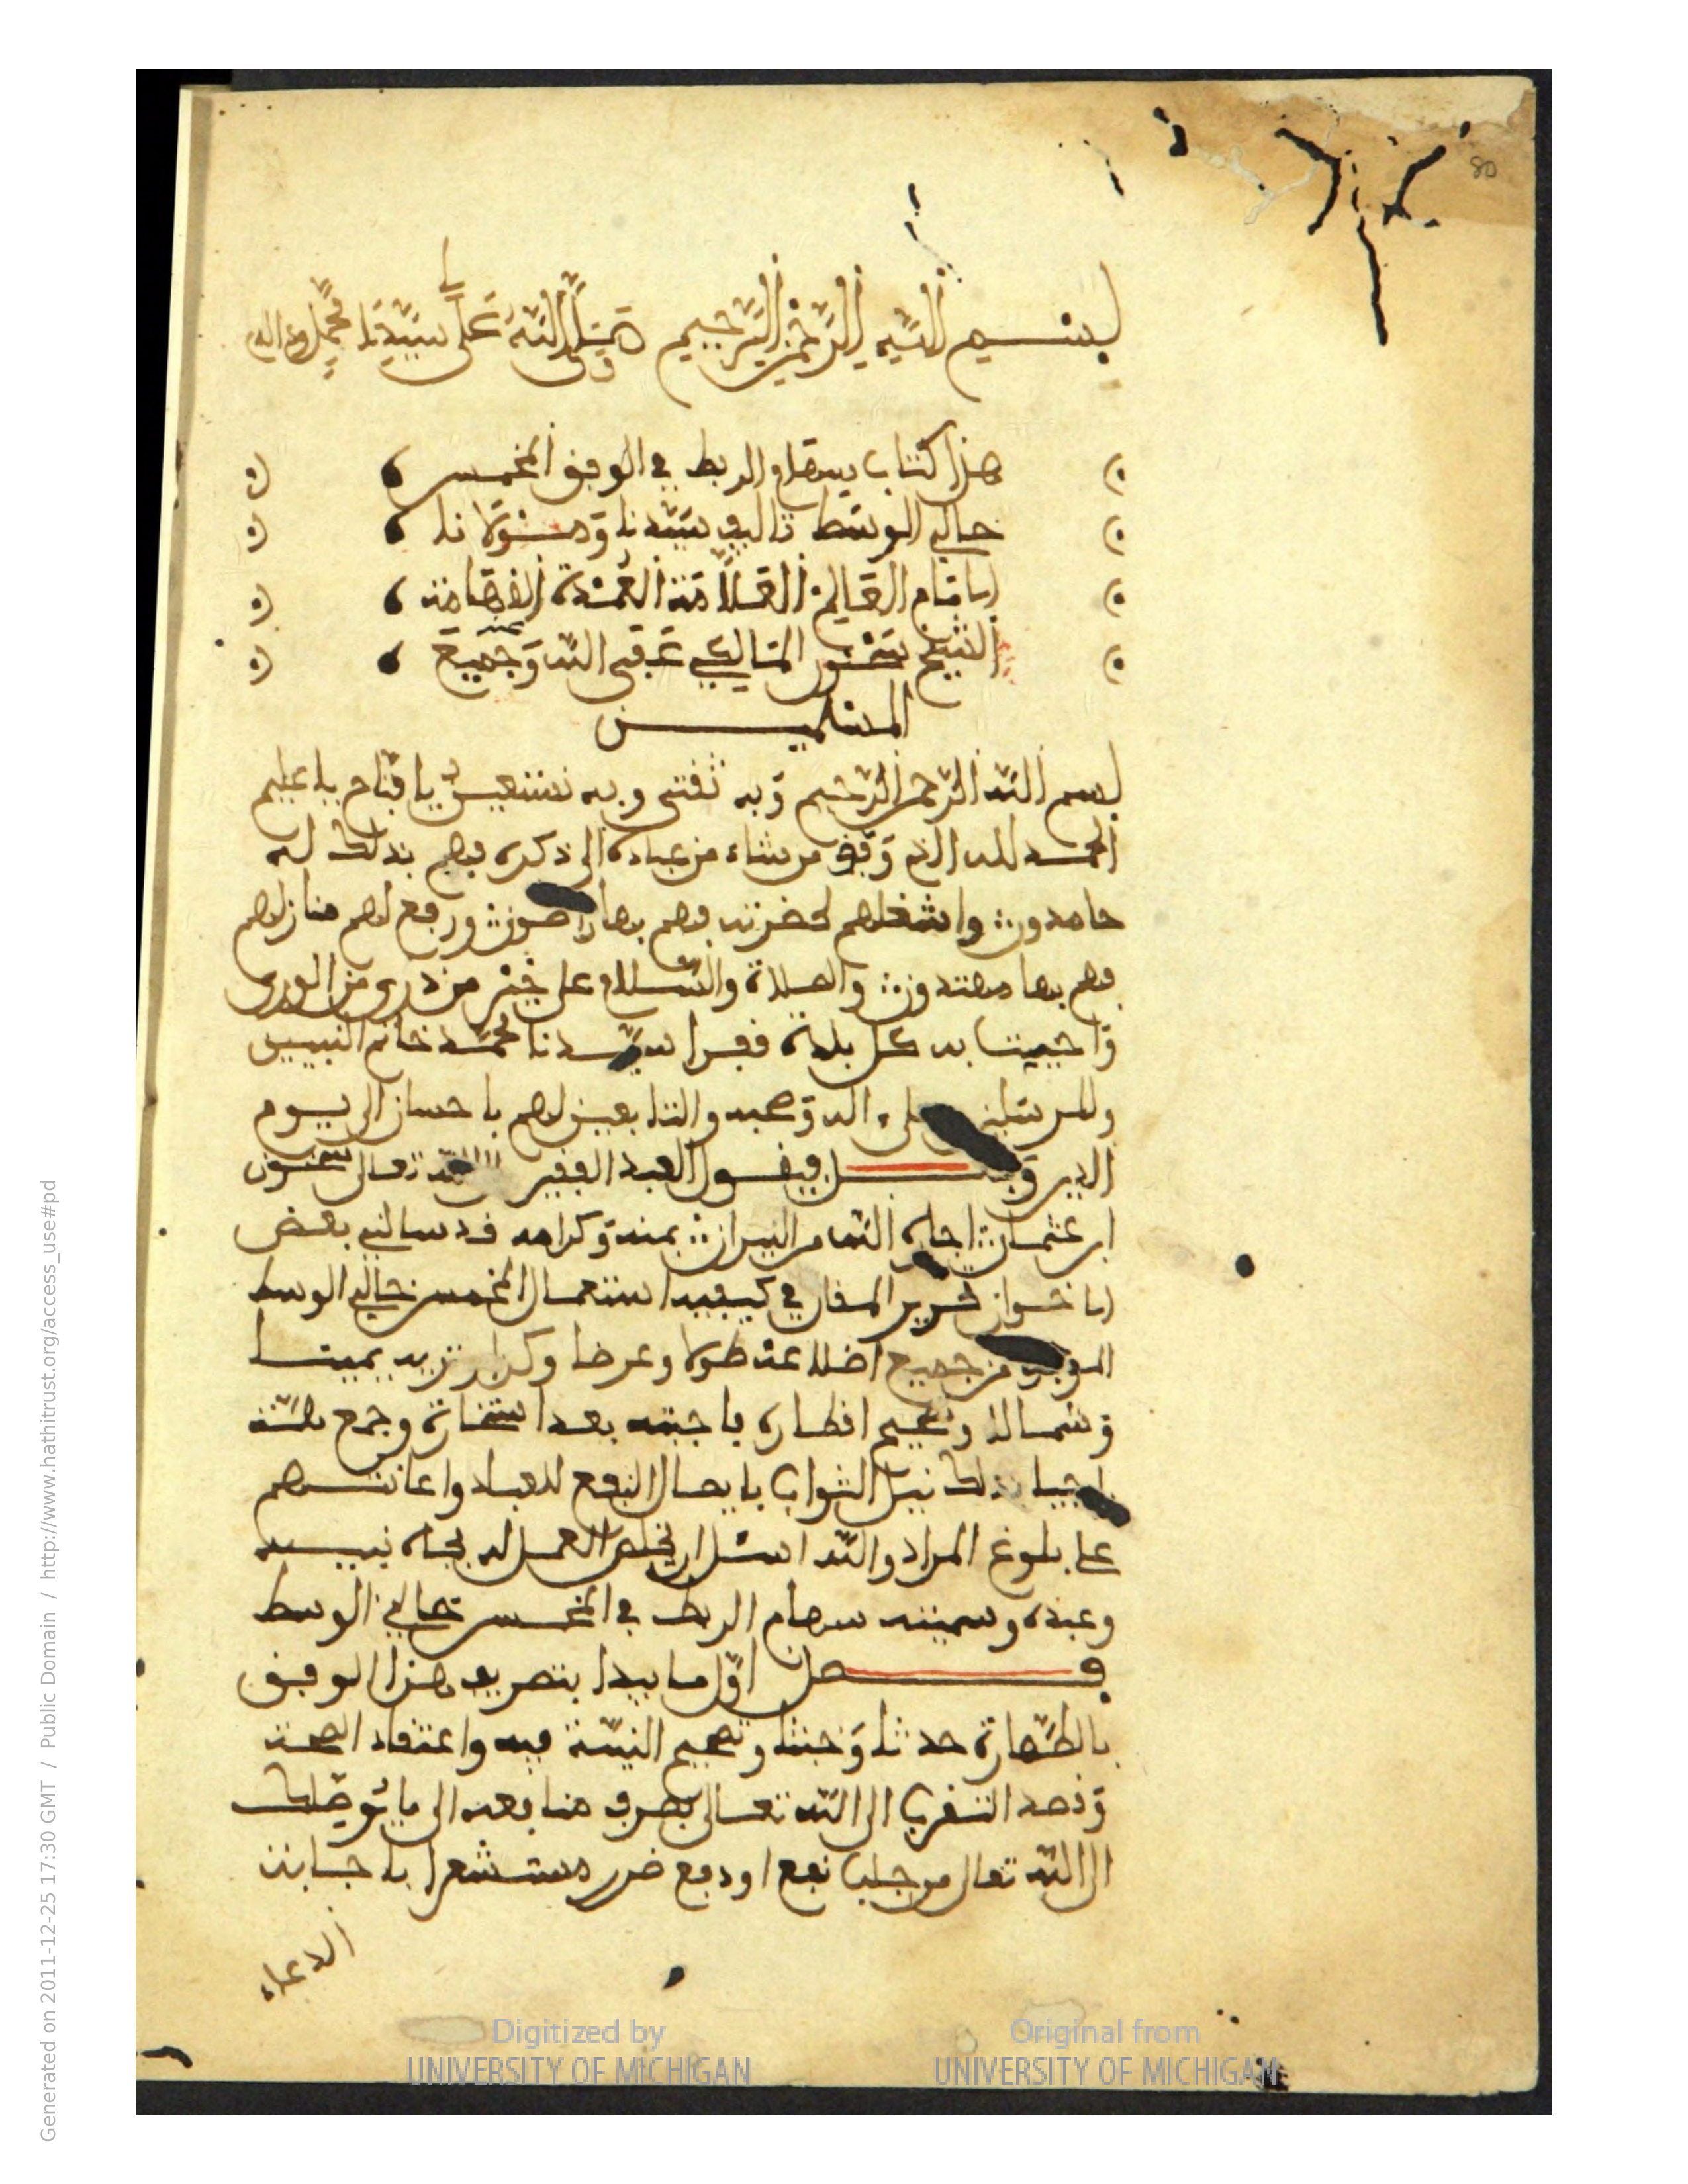 80
بسم الله الرحمن الرحيم صلى الله على سيدنا محمد وءاله
هذا كتاب سهام الربط في الوفق المخمس
خالي الوسط تاليف سيدنا ومولانا
الامام العالم العلامة العمدة الفهامة
الشيخ سحنون المالكي عفى الله عنه وجميع
المسلمين
بسم الله الرحمن الرحيم وبه ثقتي وبه نستعين يا فتاح يا عليم
الحمد لله الذي وفق من شاء من عباده الى ذكره فهم بذلك له
حامدون واشغلهم لحضرته فهم بها راضون ورفع لهم منازلهم
فهم بها مهتدون والصلاة والسلام على خير من ذرى من الورى
واحييت به كل بلدة قفرا سيدنا محمد خاتم النبيين
والمرسلين على ءاله وصحبه والتابعين لهم باحسان الى يوم
الدين وبعد فيقول العبد الفقير الله تعالى سحنون
ابن عثمان اجاره الله من النيران بمنه وكرامه قد سالني بعض
الاخوان تحرير المقال في كيفية استعمال المخمس خالي الوسط
الموفق من جميع اضلاعه طولا وعرضا وكذا تزييد يمينا
وشمالا وتعميم اقطاره فاجبته بعد استخارة وجمع همة
راجيا بذلك نيل الثواب بايصال النفع للعباد واعانتهم
على بلوغ المراد والله اسئل ان يخلص العمل له بجاه نبيه
وعبده وسميته سهام الربط في المخمس خالي الوسط
فصل اول ما يبدا بتصريف هذا الوفق
بالطهارة حدثا وخبثا وتصحيح النية فيه واعتقاد الصحة
وقصد التقرب الى الله تعالى بصرف منافعه الى ما يوصلك
الى الله تعالى من جلب نفع او دفع ضرر مستشعرا باجابة
الدعاء
Digitized by
UNIVERSITY OF MICHIGAN
Original from
UNIVERSITY OF MICHIGAN
Generated on 2011-12-25 17:30 GMT / http://www.hathitrust.org/access_use#pd
Public Domain